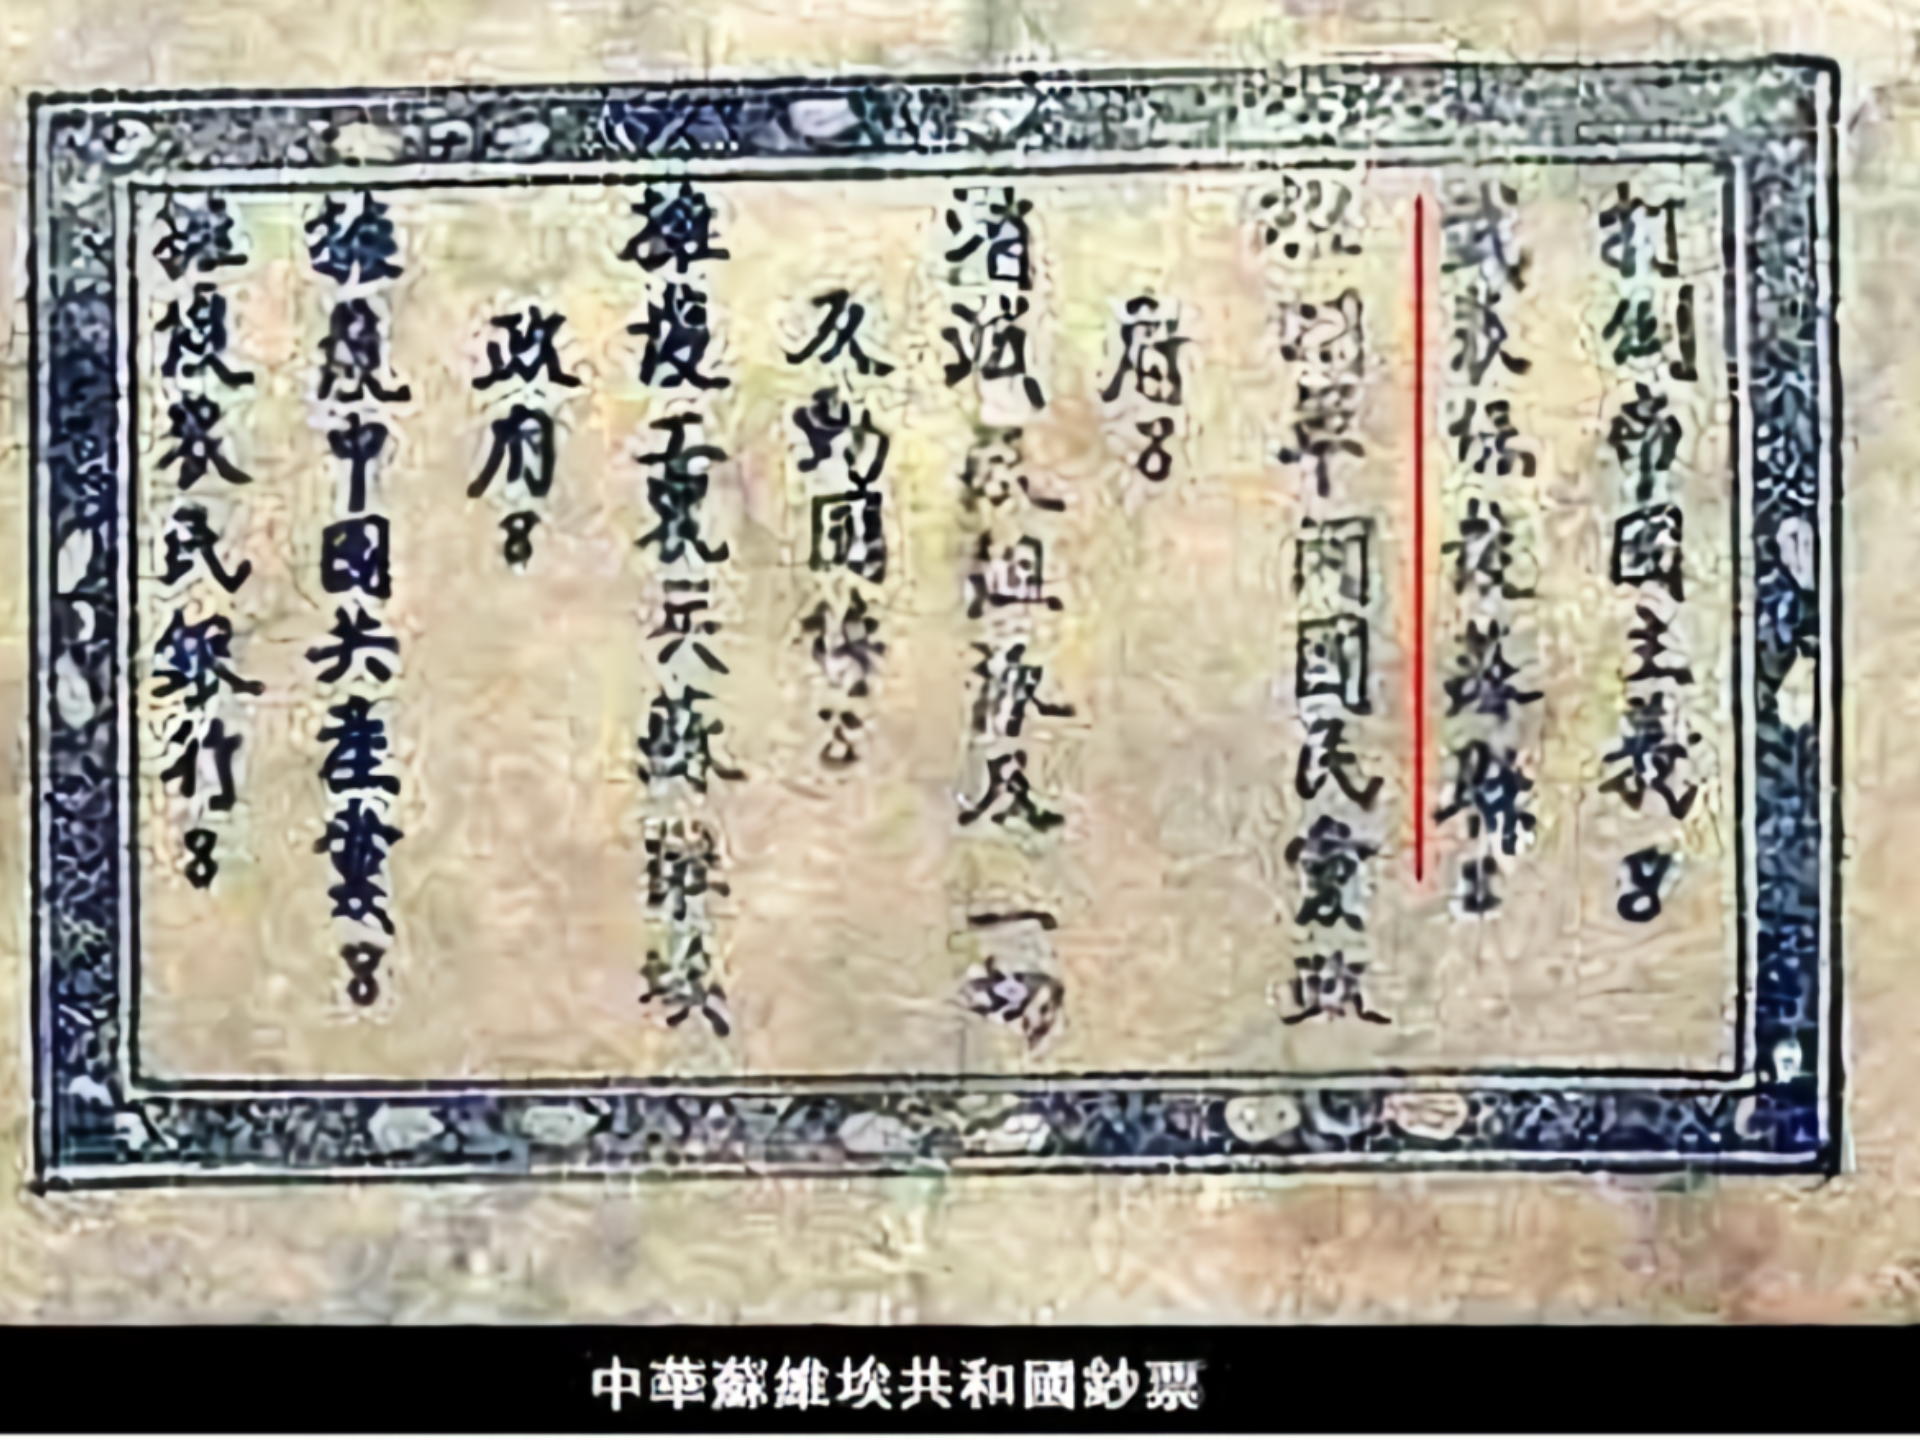 打倒帝國主義8
武裝保護蘇聯8
軍閥國民黨政
府8
消滅改組派及一切
反動團体8
擁護工農兵蘇維埃
政府8
擁護中國共產黨8
擁護農民銀行8
中華蘇維埃共和國鈔票